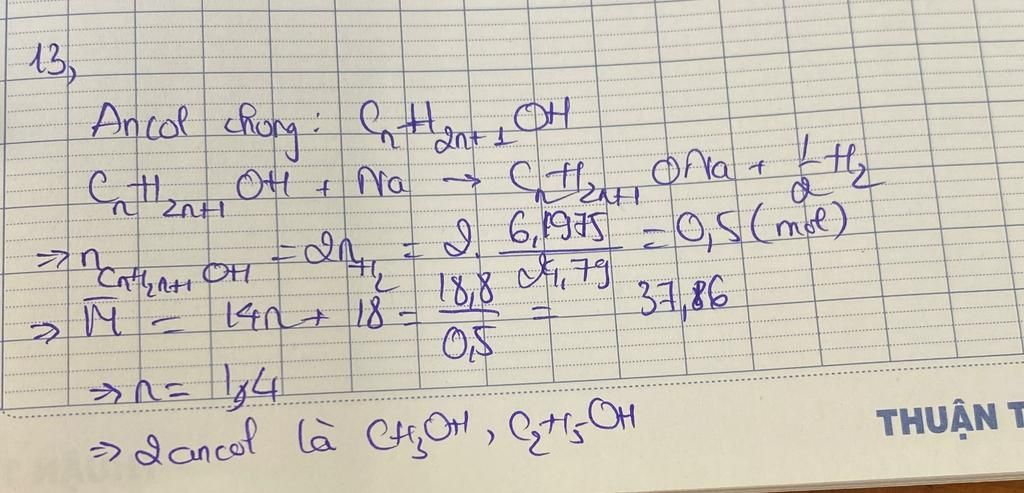 13,
Ancol chung: CnH2n+1OH
CnH2n+1OH + Na → CnH2n+1ONa + 1/2 H2
⇒ nCnH2n+1OH = 2nH2 = 2. 6,1975/24,79 = 0,5 (mol)
⇒ M̅ = 14n + 18 = 18,8/0,5 = 37,86
⇒ n = 1,4
⇒ 2 ancol là CH3OH, C2H5OH
THUẬN T